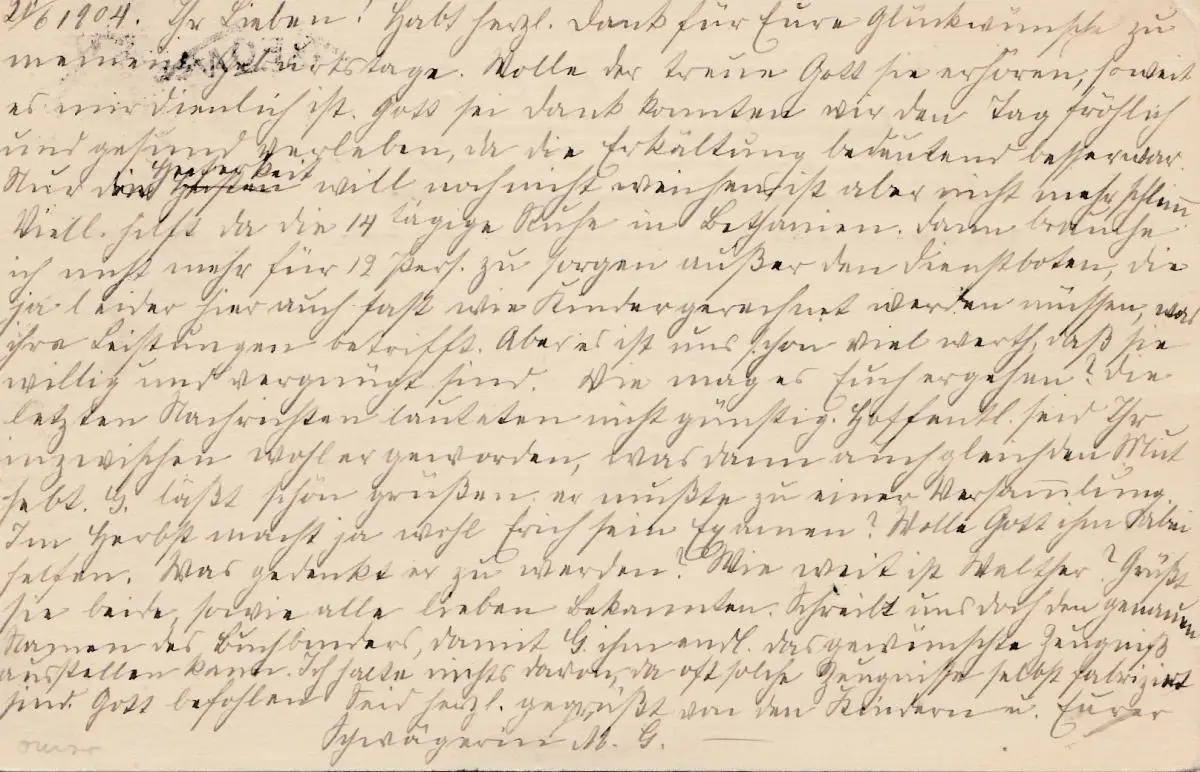 21/6 1904. Ihr Lieben! Habt herzl. Dank für Eure Glückwünsche zu
meinem Geburtstage. Wolle der treue Gott sie erhören, soweit
es mir dienlich ist. Gott sei Dank konnten wir den Tag fröhlich
und gesund verleben, da die Erkältung bedeutend besser war.
Nur die Heiserkeit will noch nicht weichen, ist aber nicht mehr schlimm
Viell. hilft da die 14 tägige Ruhe in Bethanien. Dann brauche
ich nicht mehr für 12 Pers. zu sorgen außer den Dienstboten, die
ja leider hier auch fast wie Kinder gerechnet werden müssen, was
ihre Leistungen betrifft. Aber es ist uns schon viel werth, daß sie
willig und vergnügt sind. Wie mag es Euch ergehen? Die
letzten Nachrichten lauteten nicht günstig. Hoffentl. seid Ihr
inzwischen wohler geworden, was dann auch gleich den Mut
hebt. G. läßt schön grüßen. er mußte zu einer Versammlung.
Im Herbst macht ja wohl Erich sein Examen? Wolle Gott ihm dabei
helfen. Was gedenkt er zu werden? Wie weit ist Walther? Grüßt
sie beide, sowie alle lieben Bekannten. Schreibt uns doch den genauen
Namen des Buchbinders, damit G. ihm endl. das gewünschte Zeugniß
ausstellen kann. Ich halte nichts davon, da oft solche Zeugnisse selbst fabriziert
sind. Gott befohlen Seid herzl. gegrüßt von den Kindern u. Eurer
Schwägerin M. G.